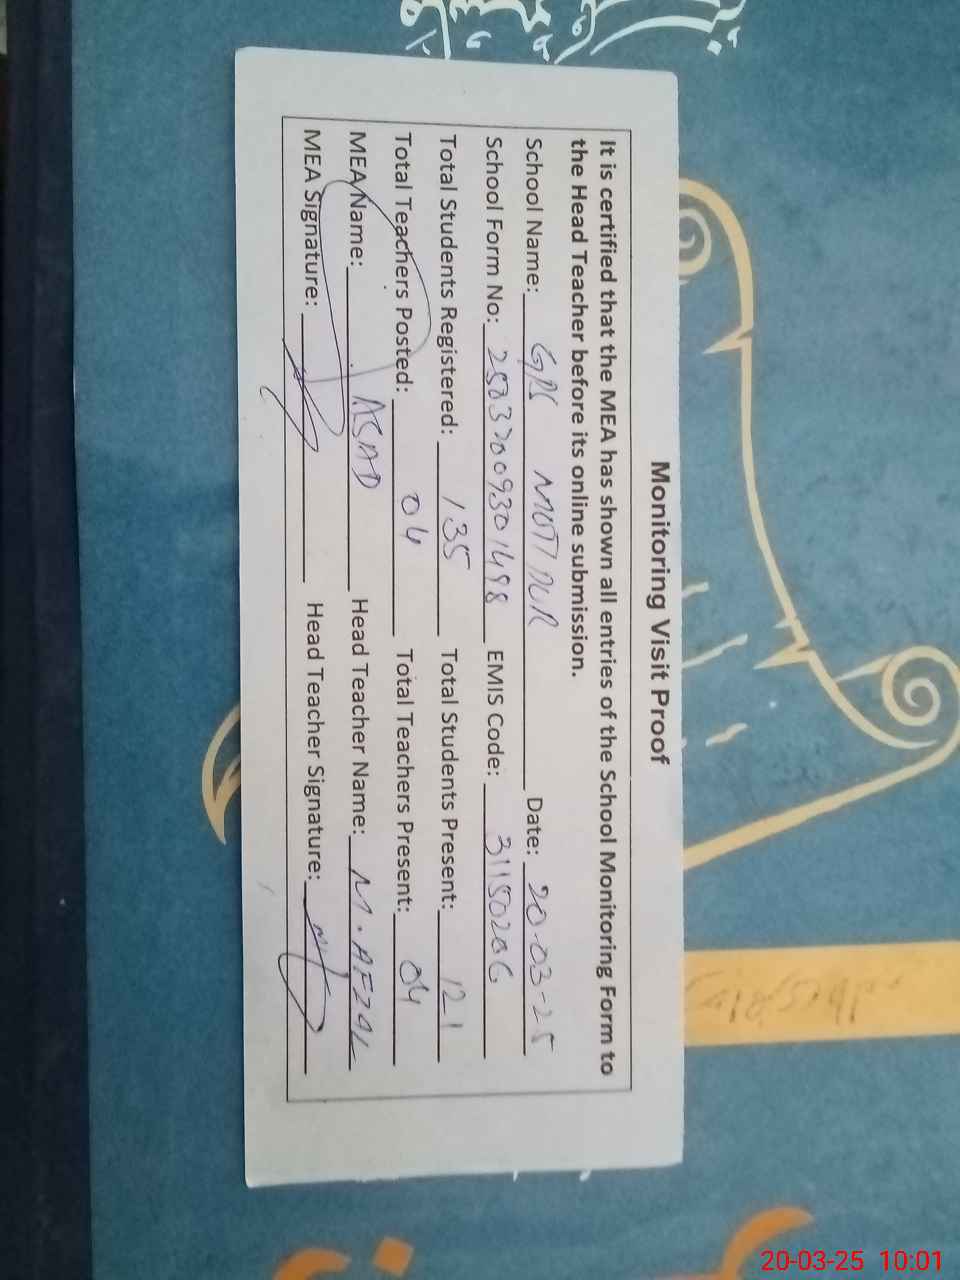 Monitoring Visit Proof
It is certified that the MEA has shown all entries of the School Monitoring Form to
the Head Teacher before its online submission.
School Name: GPS MOTI PUR Date: 20-03-25
School Form No: 25037009301498 EMIS Code: 31150206
Total Students Registered: 135 Total Students Present: 121
Total Teachers Posted: 04 Total Teachers Present: 04
MEA Name: ASAD Head Teacher Name: M. AFZAL
MEA Signature: Head Teacher Signature:
20-03-25 10:01